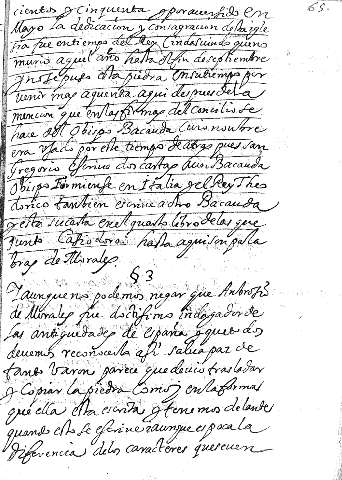 65.
cientos y cinquenta y por aver sido en
Mayo la dedicacion y consagracion desta igle
sia fue en tiempo del Rey Cindasuindo que no
murio aquel año hasta el fin de septiembre
y no se puso esta piedra en su tiempo por
venir mas a quenta aqui despues de la
mencion que en las firmas del Concilio se
hace del Obispo Bacauda cuio nombre
era usado por este tiempo de atras pues san
Gregorio escrivio dos cartas a un Bacauda
Obispo Formiense en Italia y el Rey Theo
dorico tambien escrive a otro Bacauda
y esto su carta en el quarto libro de las que
junto Casiodoro hasta aqui son pala
bras de Morales
§ 3
Y aunque no podemos negar que Ambrosio
de Morales fue doctissimo indagador de
las antiguedades de españa y que todos
devemos reconocerlo assi salva paz de
tanto varon parece que devio trasladar
y Copiar la piedra Como y en la forma
que ella esta escrita y tenemos delante
quando esto se escrive y aunque es poca la
diferencia de los caracteres que se ven